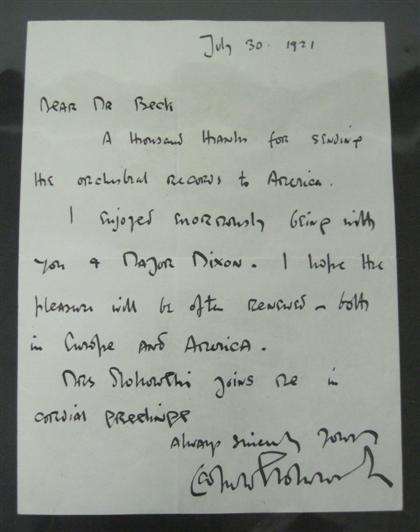 July 30. 1921
Dear Mr Beck
A thousand thanks for sending
the orchestral records to America.
I enjoyed enormously being with
you & Major Nixon. I hope the
pleasure will be often renewed – both
in Europe and America.
Mrs Stokowski joins me in
cordial greetings
Always sincerely yours
Leopold Stokowski